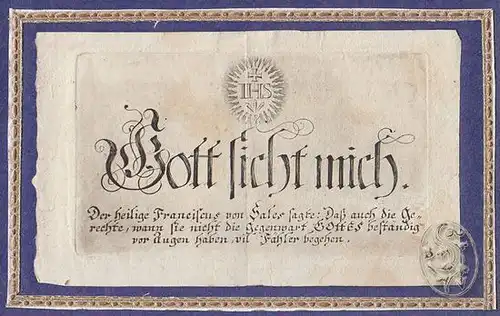 IHS
Gott sicht mich.
Der heilige Franciscus von Sales sagte: Daß auch die Ge-
rechte, wann sie nicht die Gegenwart GOttes beständig
vor Augen haben, vil Fähler begehen.